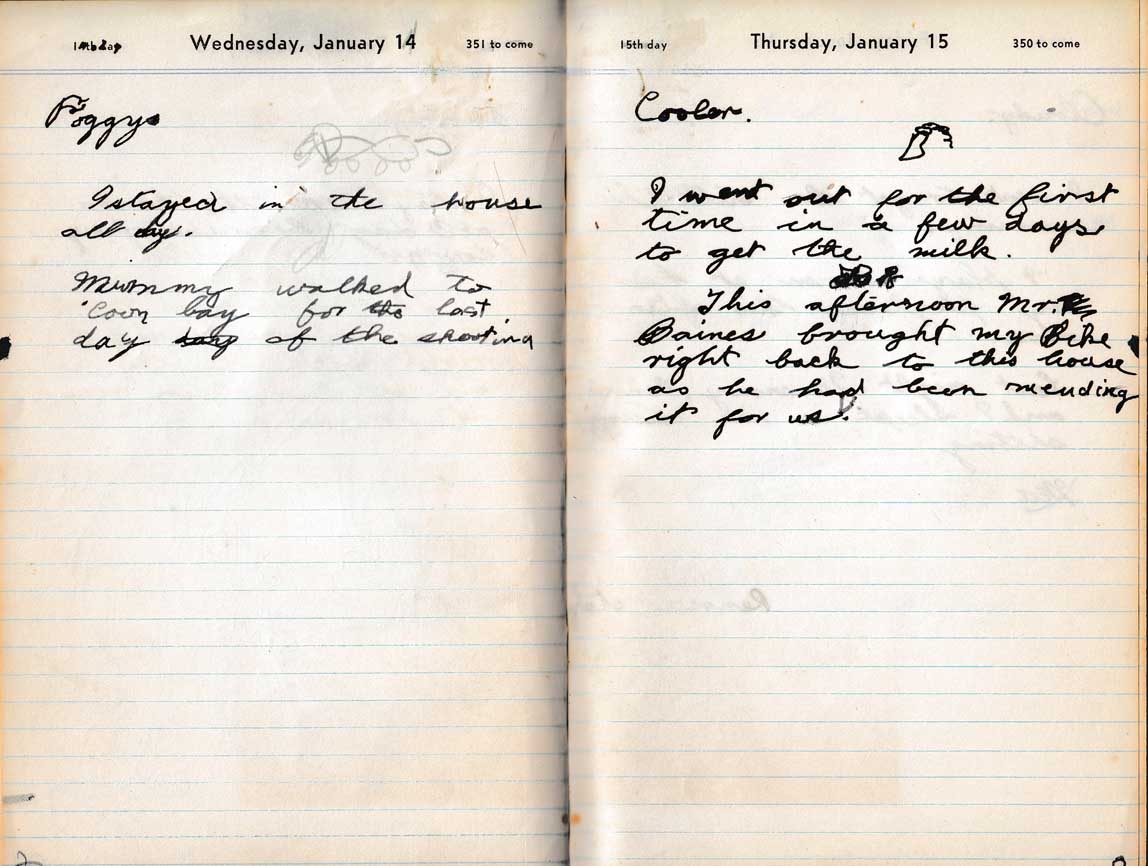 14th day Wednesday, January 14 351 to come
Foggy.
I stayed in the house
all day.
Mummy walked to
'Coon bay for the last
day of the shooting
15th day Thursday, January 15 350 to come
Cooler.
I went out for the first
time in a few days
to get the milk.
This afternoon Mr.
Baines brought my Bike
right back to this house
as he had been mending
it for us.